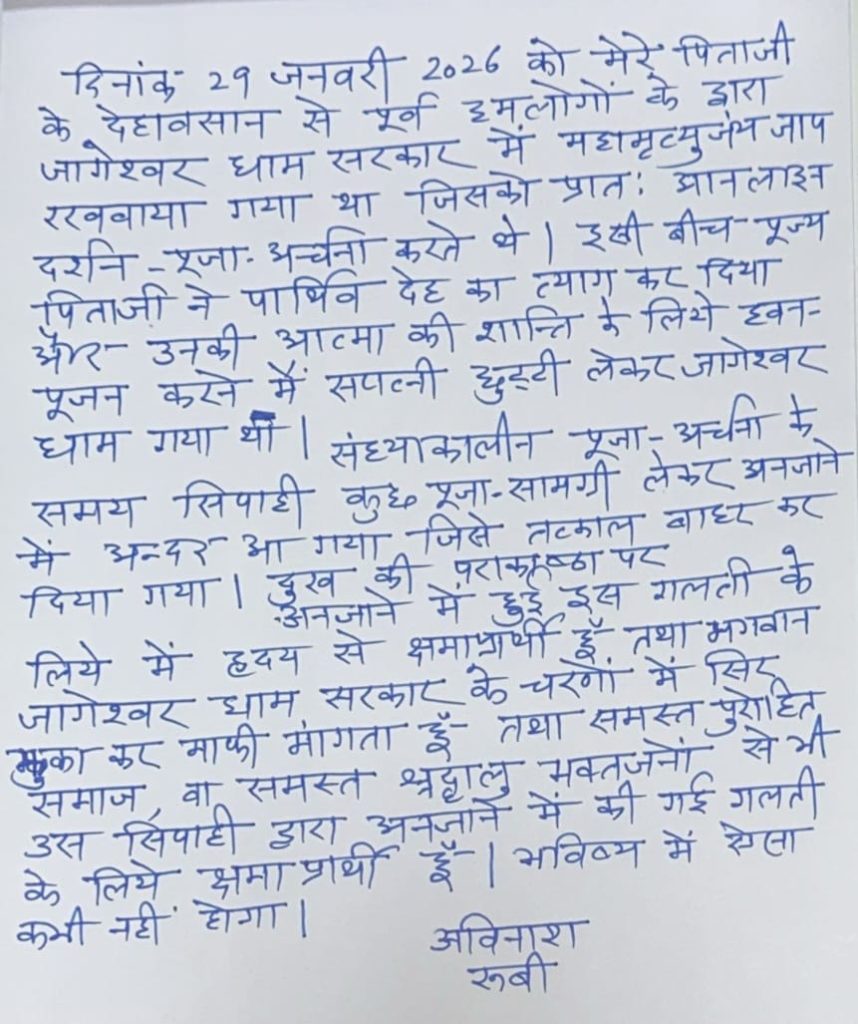 दिनांक 29 जनवरी 2026 को मेरे पिताजी
के देहावसान से पूर्व हमलोगों के द्वारा
जागेश्वर धाम सरकार में महामृत्युजंय जाप
रखवाया गया था जिसको प्रातः आनलाइन
दर्शन - पूजा- अर्चना करते थे | इसी बीच पूज्य
पिताजी ने पार्थिव देह का त्याग कर दिया
और उनकी आत्मा की शान्ति के लिये हवन-
पूजन करने मैं सपत्नी छुट्टी लेकर जागेश्वर
धाम गया था | संध्याकालीन पूजा-अर्चना के
समय सिपाही कुछ पूजा-सामग्री लेकर अनजाने
में अन्दर आ गया जिसे तत्काल बाहर कर
दिया गया | दुख की पराकाष्ठा पर
अनजाने में हुई इस गलती के
लिये में हृदय से क्षमाप्रार्थी हूँ तथा भगवान
जागेश्वर धाम सरकार के चरणों में सिर
झुका कर माफी मांगता हूँ तथा समस्त पुरोहित
समाज, वा समस्त श्रद्धालु भक्तजनों से भी
उस सिपाही द्वारा अनजाने में की गई गलती
के लिये क्षमा प्रार्थी हूँ | भविष्य में ऐसा
कभी नहीं होगा |
अविनाश
रूबी